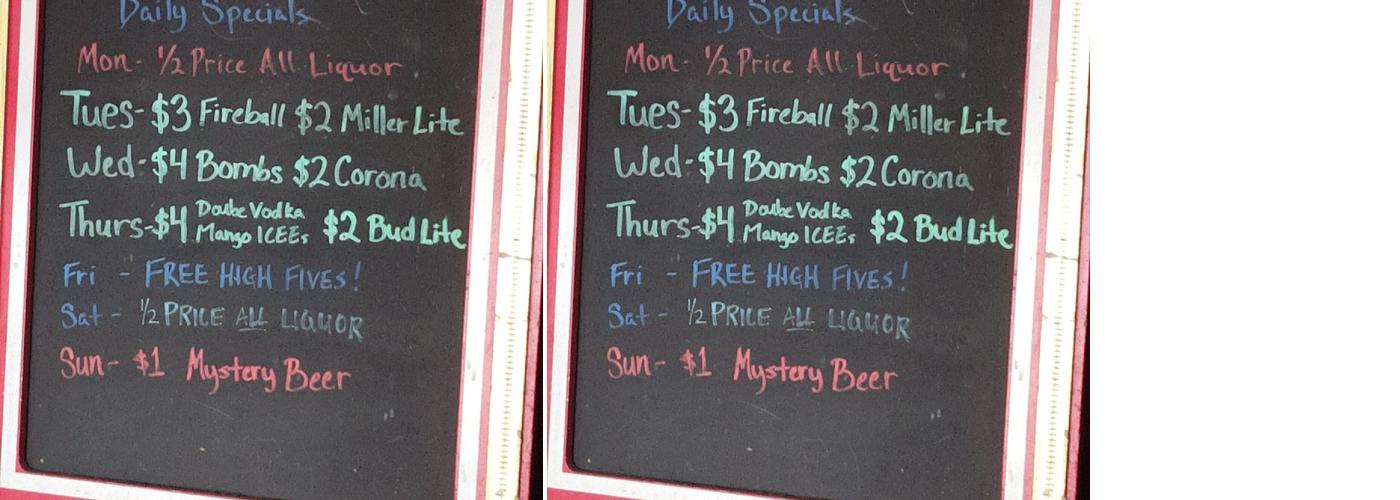 Daily Specials
Mon- 1/2 Price All Liquor
Tues- $3 Fireball $2 Miller Lite
Wed- $4 Bombs $2 Corona
Thurs- $4 Doube Vodka Mango ICEEs $2 Bud Lite
Fri - FREE HIGH FIVES!
Sat - 1/2 PRICE ALL LIQUOR
Sun- $1 Mystery Beer
Daily Specials
Mon- 1/2 Price All Liquor
Tues- $3 Fireball $2 Miller Lite
Wed- $4 Bombs $2 Corona
Thurs- $4 Doube Vodka Mango ICEEs $2 Bud Lite
Fri - FREE HIGH FIVES!
Sat - 1/2 PRICE ALL LIQUOR
Sun- $1 Mystery Beer